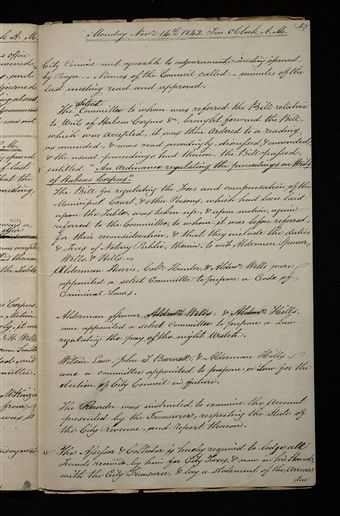 47
Monday Nov.r 14th 1842. Ten O'Clock A. M.
City Council met agreeable to adjournment, meeting opened
by Prayer – Names of the Council called – minutes of the
last meeting read and approved.
The select Committee to whom was referred the Bill relative
to Writs of Habeas Corpus &c., brought forward the Bill,
which was accepted, it was then ordered to a reading
as amended, & was read secondly, discussed, & amended,
& the usual proceedings had thereon, the Bill passed,
entitled "An Ordinance regulating the proceedings on Writs
of Habeas Corpus."
The Bill for regulating the Fees and compensation of the
Municipal Court, & other Persons, which had been laid
upon the Table, was taken up, & upon motion, again
referred to the Committee, to whom it was before referred,
for their reconsideration, & that they include the duties
& Fees of Notary Public, therein, to wit, Aldermen Spencer,
Wells, & Hills.
Alderman Harris, Col. Hunter, & Alder.n Wells were
appointed a select Committee to prepare a Code of
Criminal Laws.
Alderman Spencer, Alder.n Wells, & Alder.n Hills,
were appointed a select Committee to prepare a Law
regulating the pay of the night Watch.
Wilson Law, John T. Barnett, & Alderman Hills
were a committee appointed to prepare a Law for the
election of City Council in future.
The Recorder was instructed to examine the Account
presented by the Treasurer, respecting the State of
the City revenue, and report thereon.
The Assessor & Collector is hereby required to lodge all
funds received by him for City Taxes, & now in his hands,
with the City Treasurer, & lay a statement of the Arrears
due